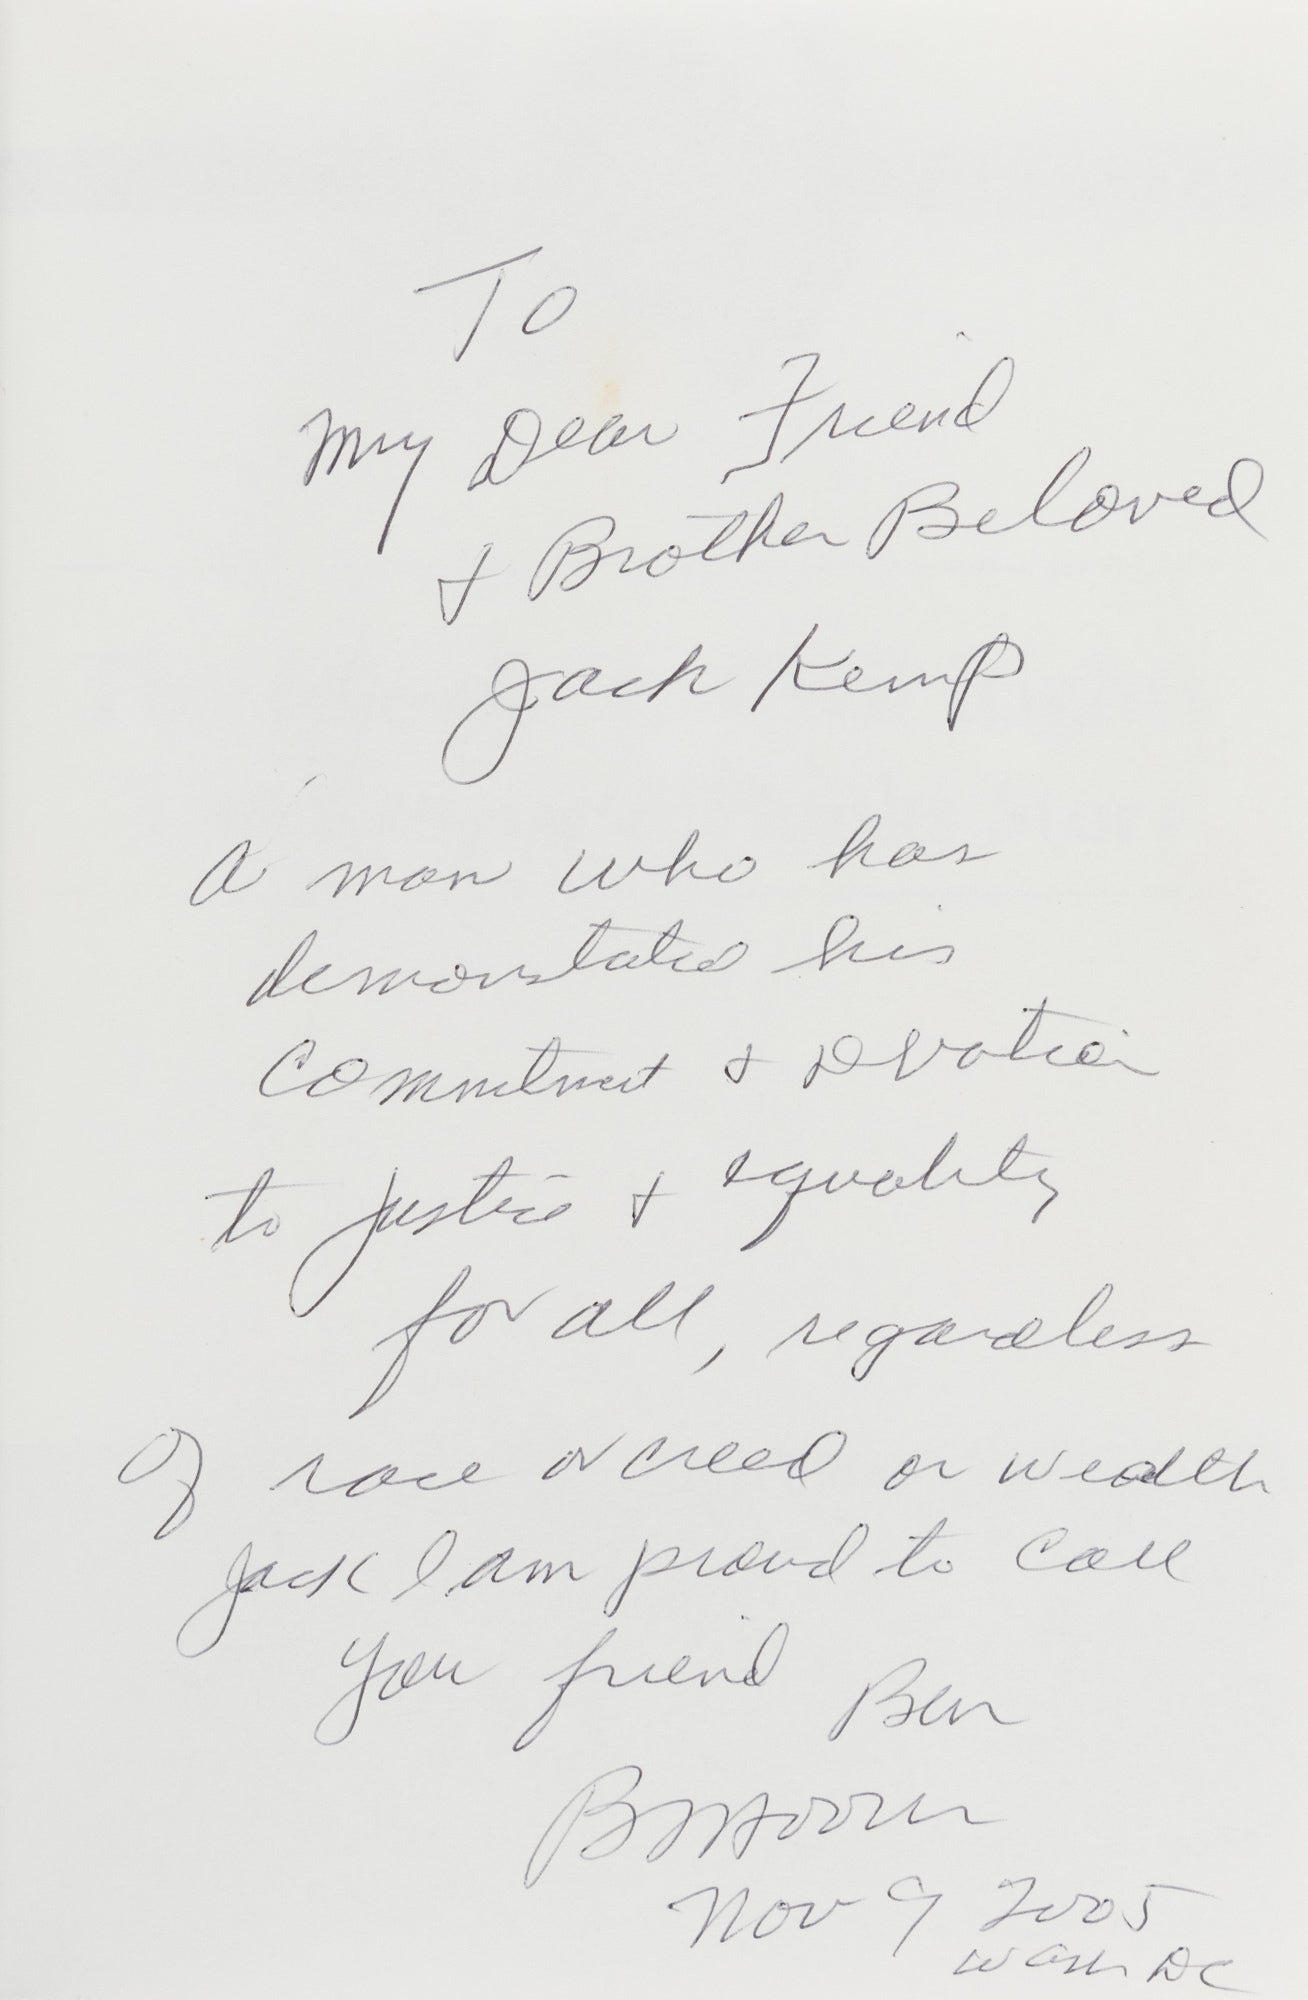 To
My Dear Friend
+ Brother Beloved
Jack Kemp
A man who has
demonstated his
Commitment + Devotion
to justice + equality
for all, regardless
Of race or creed or wealth
Jack I am proud to Call
You friend Ben
B Hooks
Nov 9 2005
Wash DC